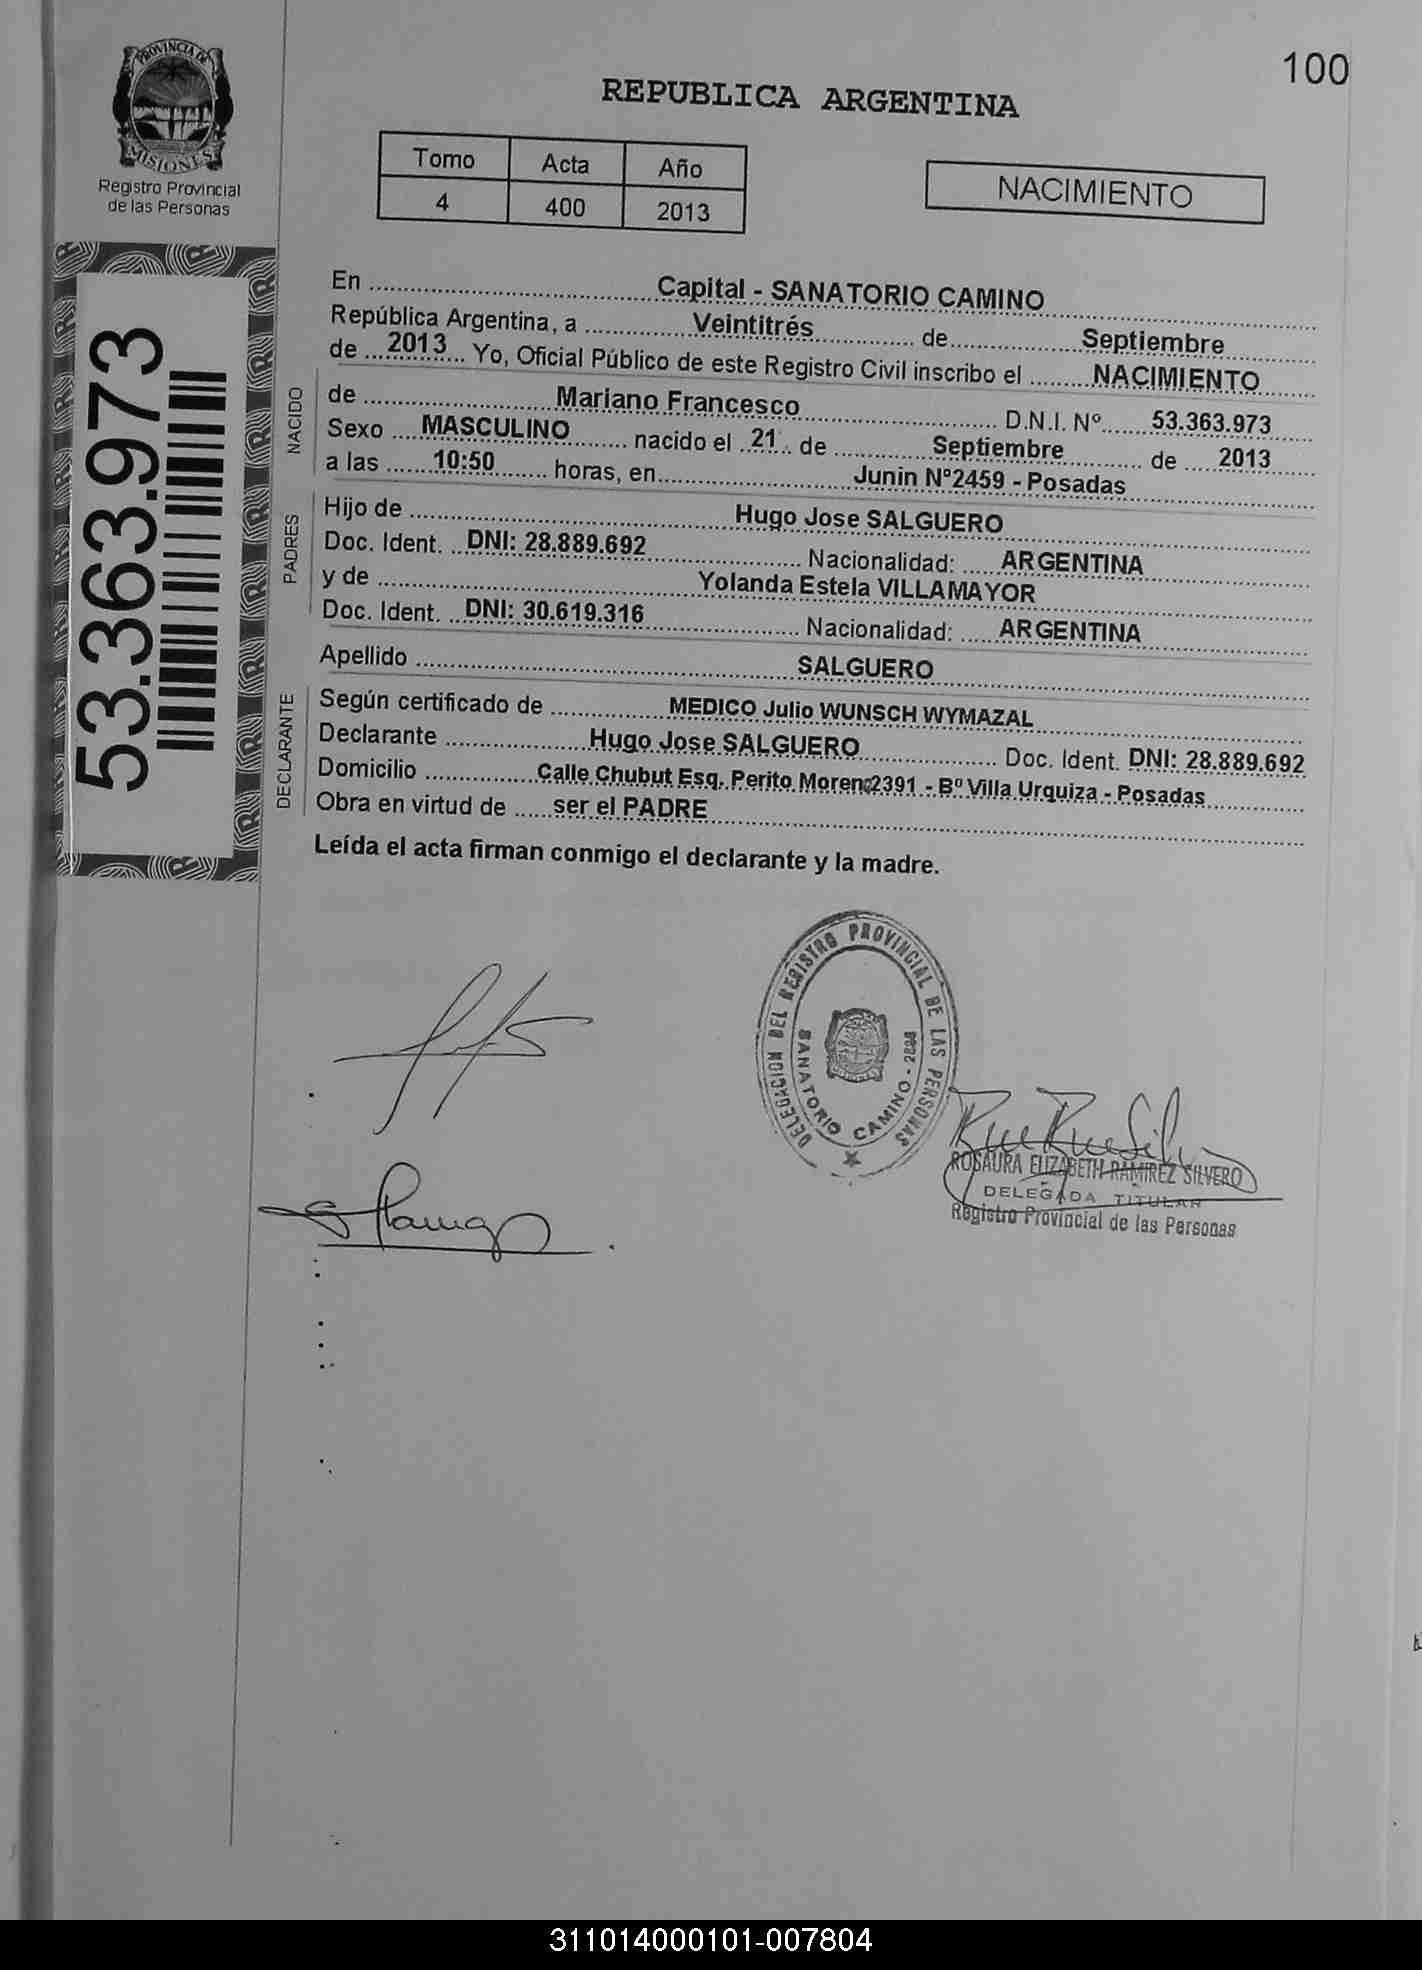 100
PROVINCIA DE
MISIONES
Registro Provincial
de las Personas
REPUBLICA ARGENTINA
Tomo Acta Año
4 400 2013
NACIMIENTO
53.363.973
En ........ Capital - SANATORIO CAMINO
República Argentina, a ........ Veintitrés ........ de ........ Septiembre
de ... 2013 ... Yo, Oficial Público de este Registro Civil inscribo el ........ NACIMIENTO
NACIDO
de ........ Mariano Francesco ........ D.N.I. Nº ...... 53.363.973
Sexo .... MASCULINO ........ nacido el .. 21 .. de ........ Septiembre ........ de .... 2013
a las ...... 10:50 ....... horas, en ........ Junin Nº2459 - Posadas
PADRES
Hijo de ........ Hugo Jose SALGUERO
Doc. Ident. .. DNI: 28.889.692 ........ Nacionalidad: ..... ARGENTINA
y de ........ Yolanda Estela VILLAMAYOR
Doc. Ident. .. DNI: 30.619.316 ........ Nacionalidad: ..... ARGENTINA
Apellido ........ SALGUERO
DECLARANTE
Según certificado de ........ MEDICO Julio WUNSCH WYMAZAL
Declarante ........ Hugo Jose SALGUERO ........ Doc. Ident. DNI: 28.889.692
Domicilio ........ Calle Chubut Esq. Perito Moreno2391 - Bº Villa Urquiza - Posadas
Obra en virtud de ..... ser el PADRE
Leída el acta firman conmigo el declarante y la madre.
DELEGACION DEL REGISTRO PROVINCIAL DE LAS PERSONAS
SANATORIO CAMINO - 2898
MISIONES
ROSAURA ELIZABETH RAMIREZ SILVERO
DELEGADA TITULAR
Registro Provincial de las Personas
311014000101-007804